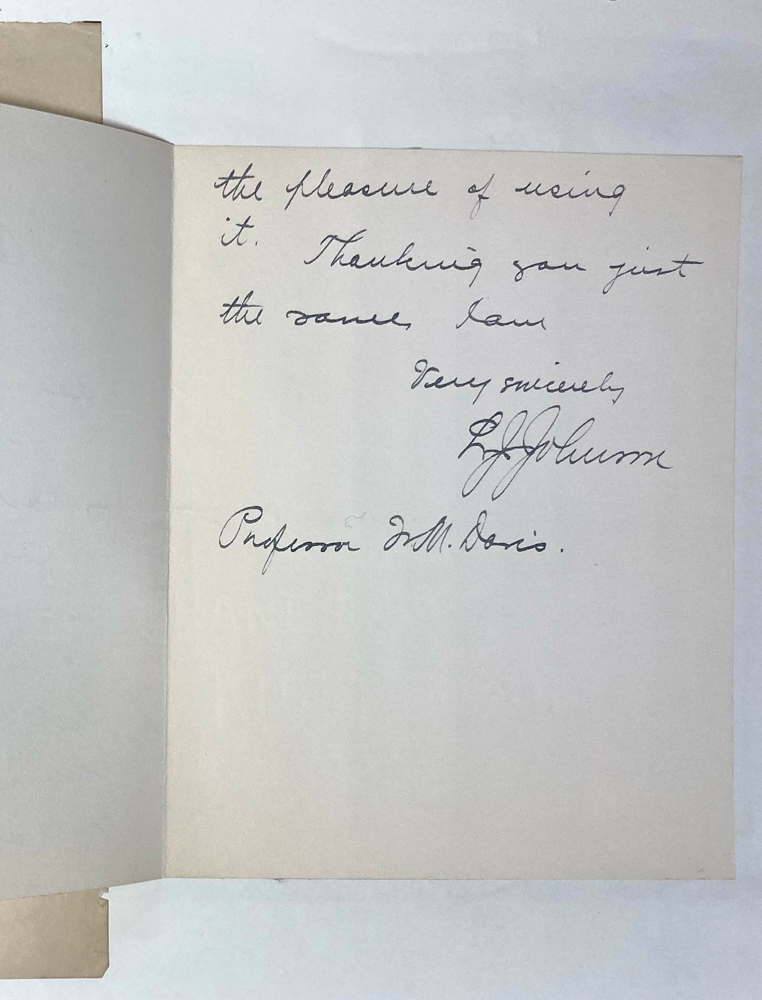 the pleasure of using
it.
Thanking you just
the same, I am
Very sincerely
L J Johnson
Professor W. M. Davis.